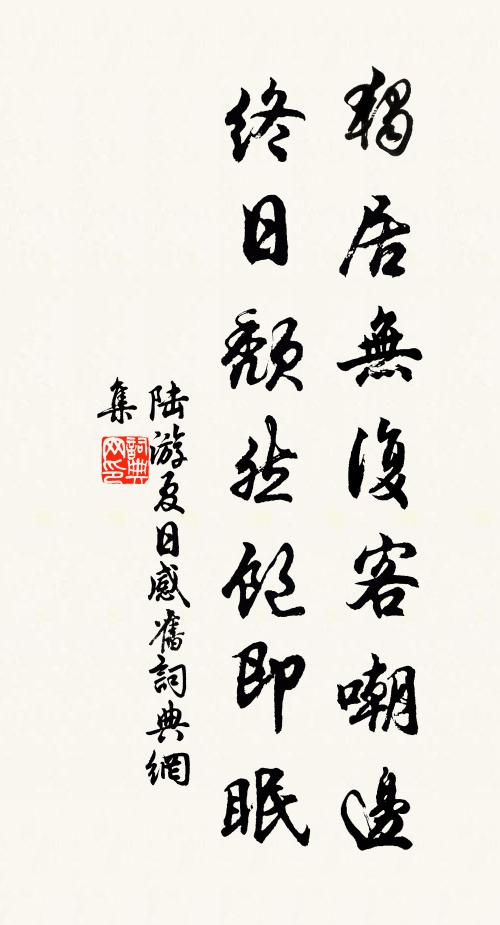 獨居無復客嘲邊
終日頽然飽即眠
陸游夏日感舊詞典網
集
詞典网印